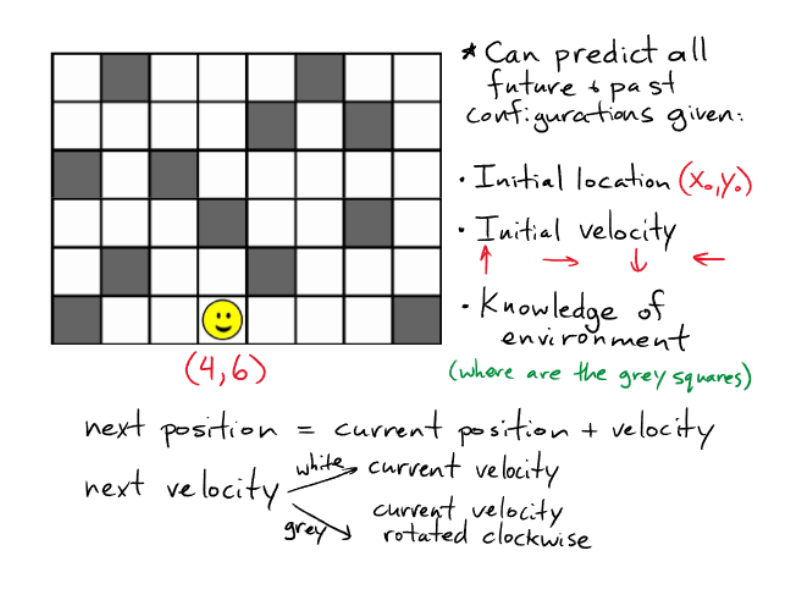 * Can predict all
future + past
configurations given:
• Initial location (x₀,y₀)
• Initial velocity
↑ → ↓ ←
• Knowledge of
environment
(where are the grey squares)
(4,6)
next position = current position + velocity
next velocity
white → current velocity
grey → current velocity
rotated clockwise